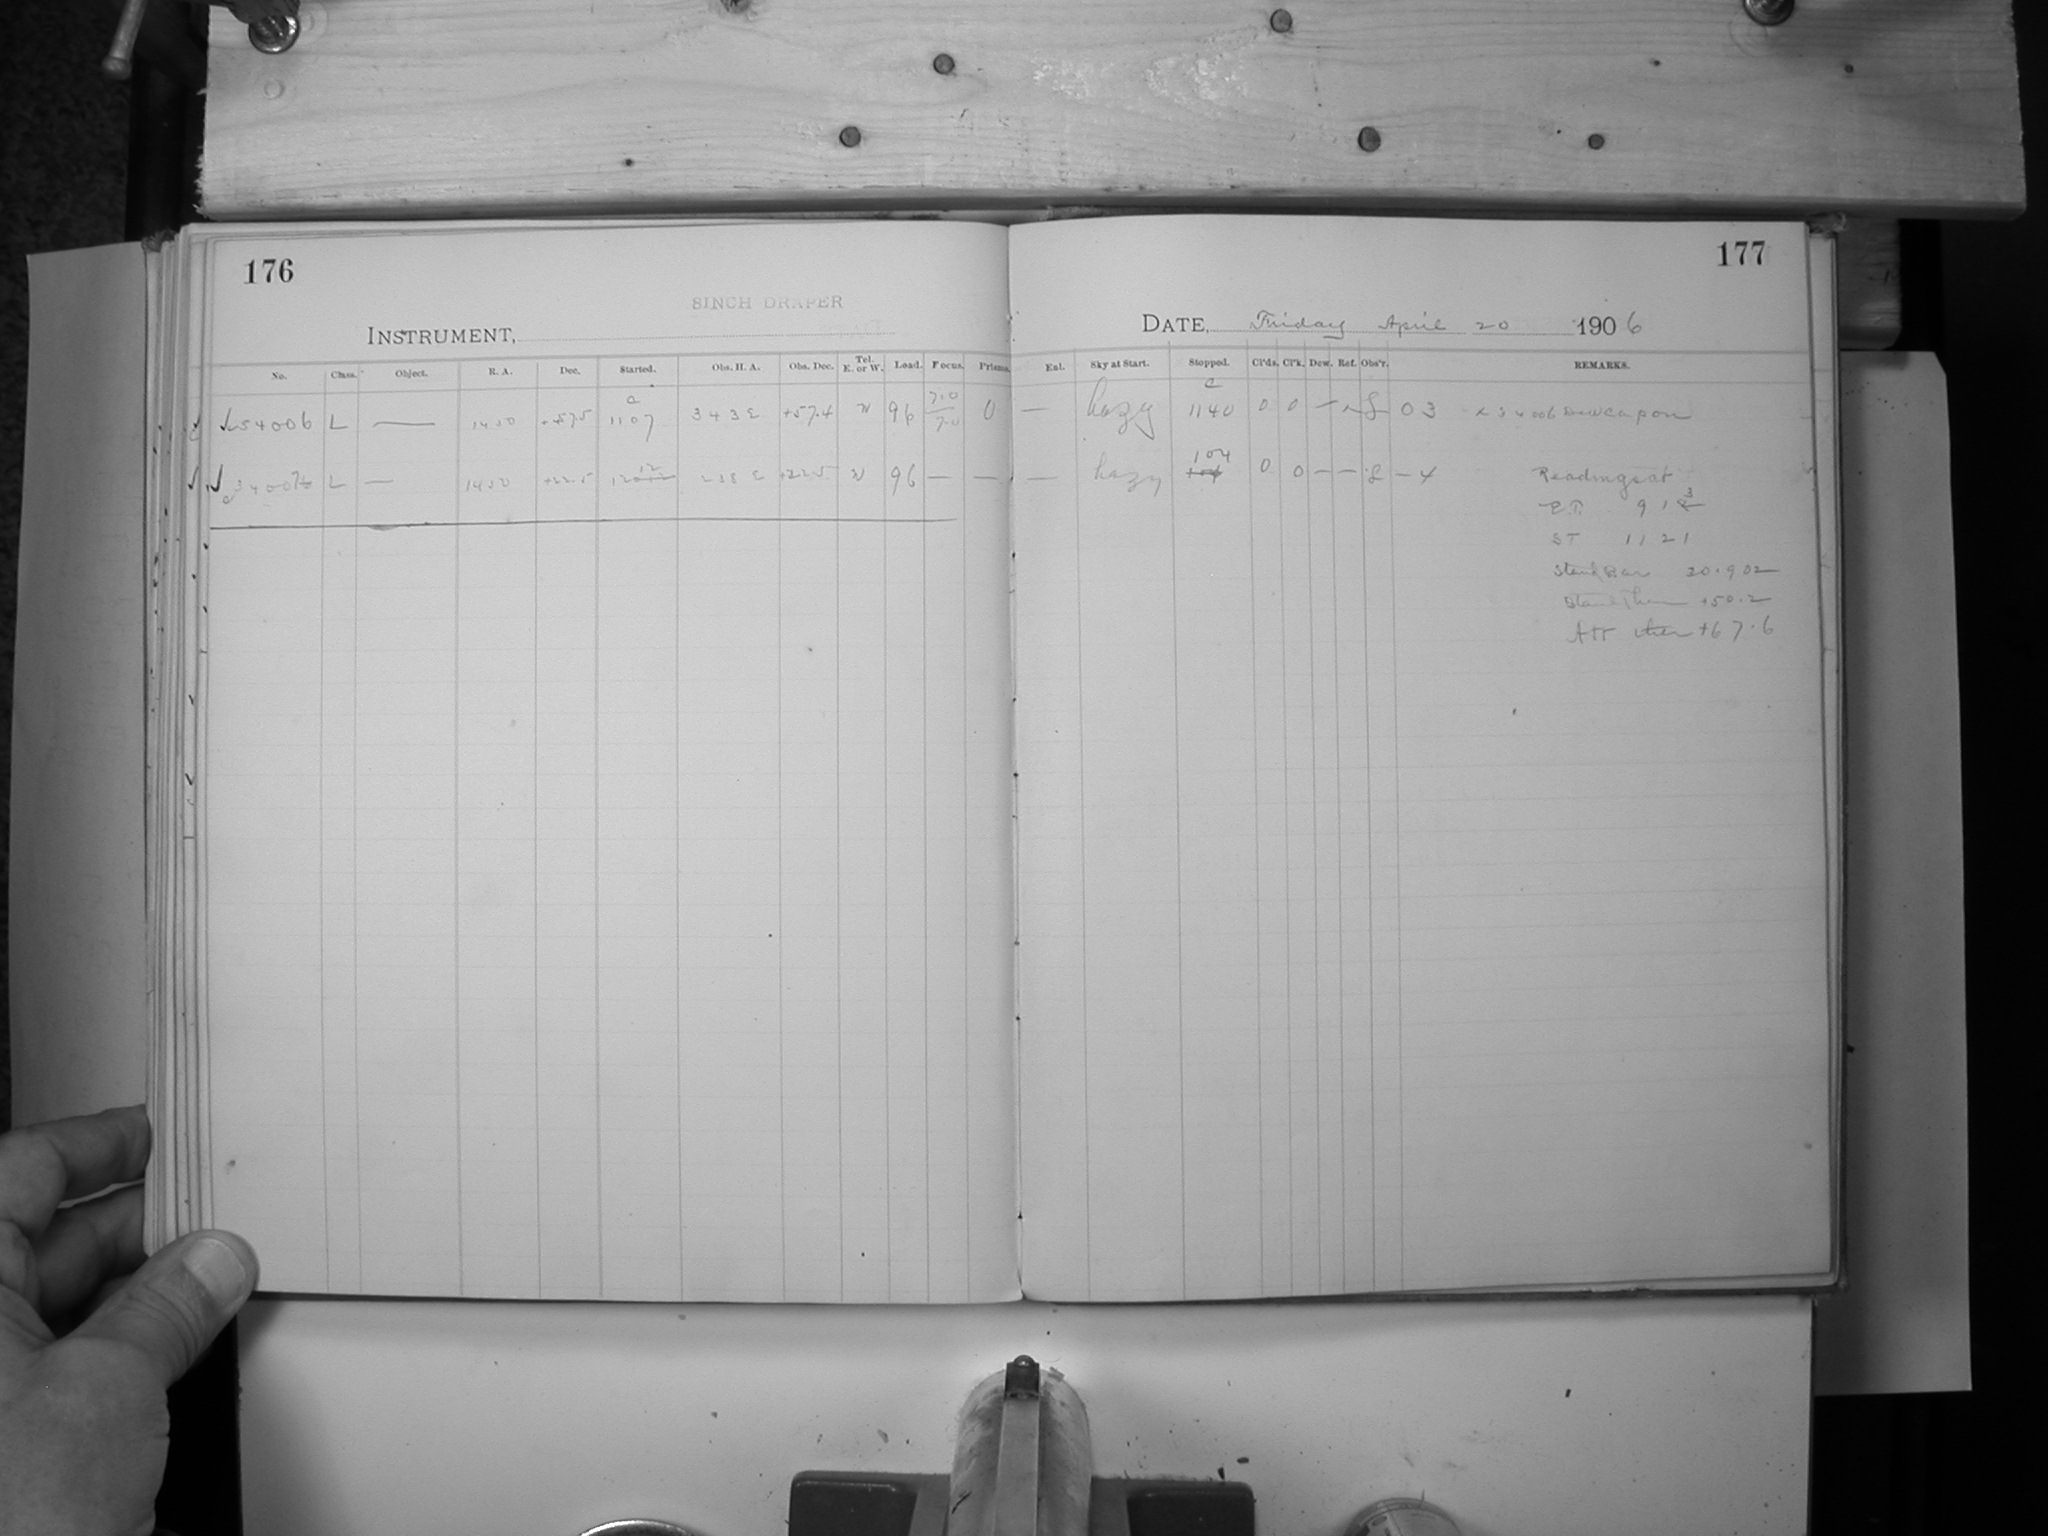 176
177
8INCH DRAPER
INSTRUMENT,
DATE, Friday April 20 1906
No. Class. Object. R. A. Dec. Started. Obs. H. A. Obs. Dec. Tel. E. or W. Load. Focus. Prisms. Enl. Sky at Start. Stopped. Cl'ds. Cl'k. Dew. Ref. Obs'r. REMARKS.
34006 L — 1430 +57.5 1107 343 E +57.4 W 96 7.0 7.0 0 — hazy 1140 0 0 — 03 34006 Dewcap on
L — 1430 +22.5 12 238 E +22.5 W 96 — — — hazy 104 0 0 — — — 4 Readings at
ST 11 21
Stand Bar
Stand Ther +50.2
Att ther +67.6